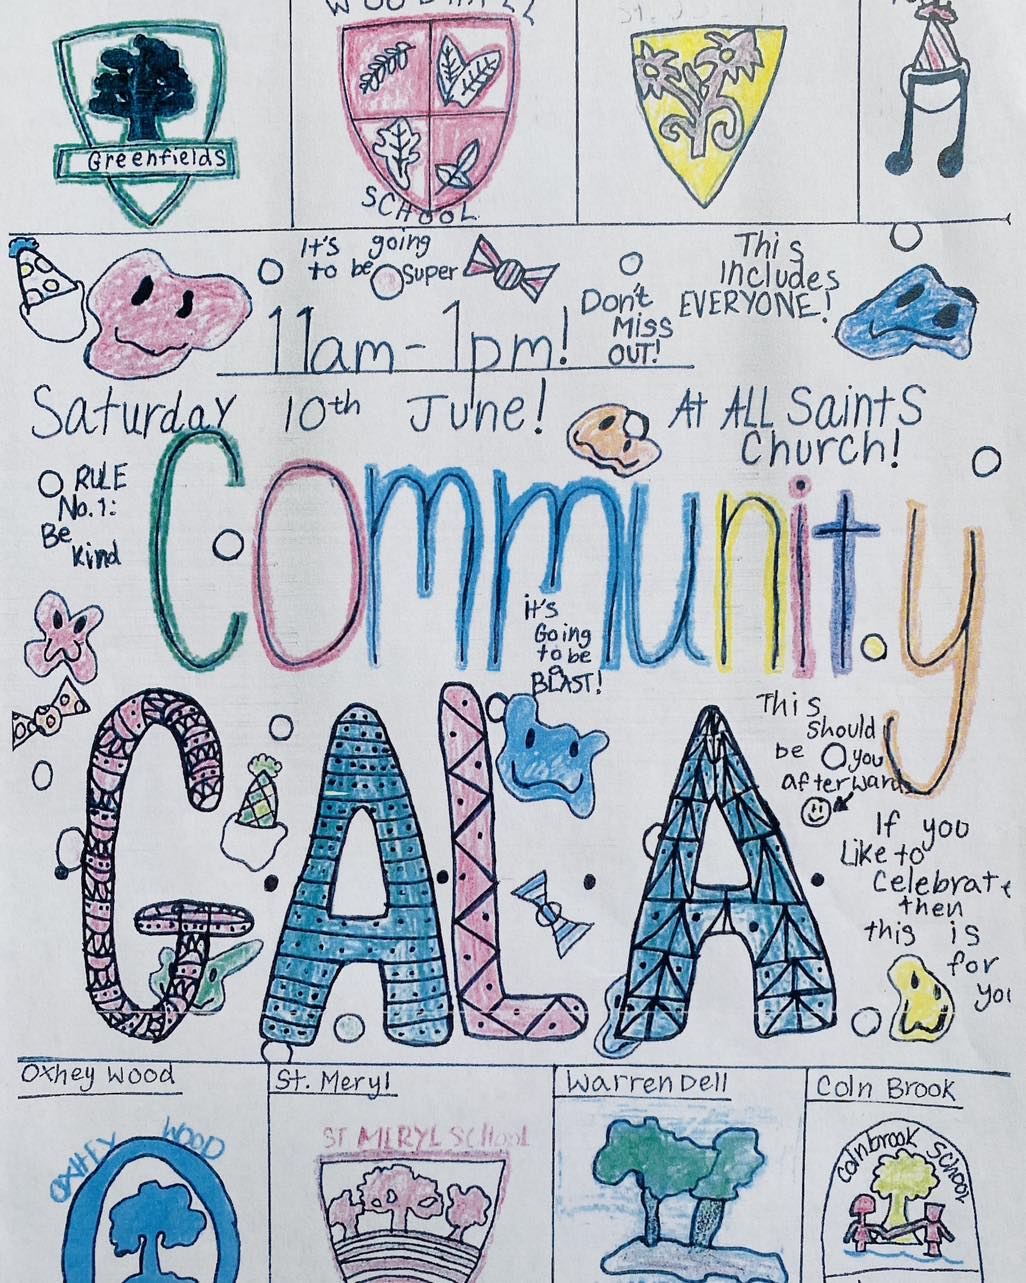 WOODHALL
Greenfields
SCHOOL
It's going
to be Super
11am-1pm!
Don't
Miss
OUT!
This
Includes
EVERYONE!
Saturday 10th June!
At ALL Saints
Church!
RULE
No.1:
Be
Kind
Community
it's
Going
to be
a
BLAST!
GALA
This
should
be you
afterwards
If you
Like to
Celebrate
then
this is
for
you
Oxhey Wood
St. Meryl
Warren Dell
Coln Brook
OXHEY WOOD
ST MERYL SCHOOL
Colnbrook School